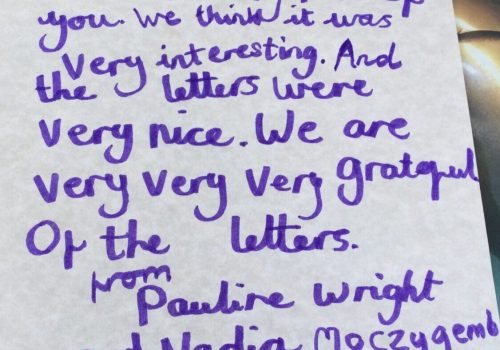 you. We think it was
Very interesting. And
the letters were
Very nice. We are
very Very Very grateful
Of the letters.
from
Pauline Wright
Nadia Moczygemb